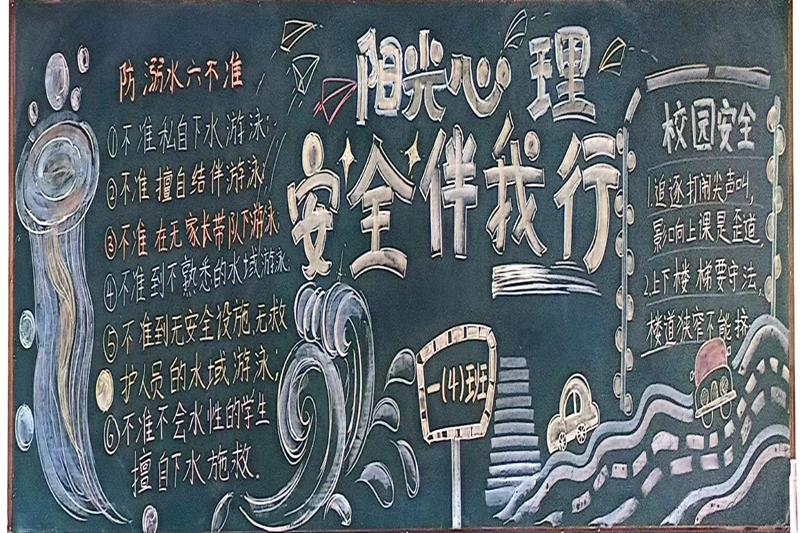 防溺水六不准
①不准私自下水游泳;
②不准擅自结伴游泳;
③不准在无家长带队下游泳
④不准到不熟悉的水域游泳.
⑤不准到无安全设施,无救
护人员的水域游泳;
⑥不准不会水性的学生
擅自下水施救.
阳光心理
安全伴我行
一(4)班
校园安全
1.追逐打闹尖声叫,
影响上课是歪道,
2.上下楼梯要守法,
楼道狭窄不能挤